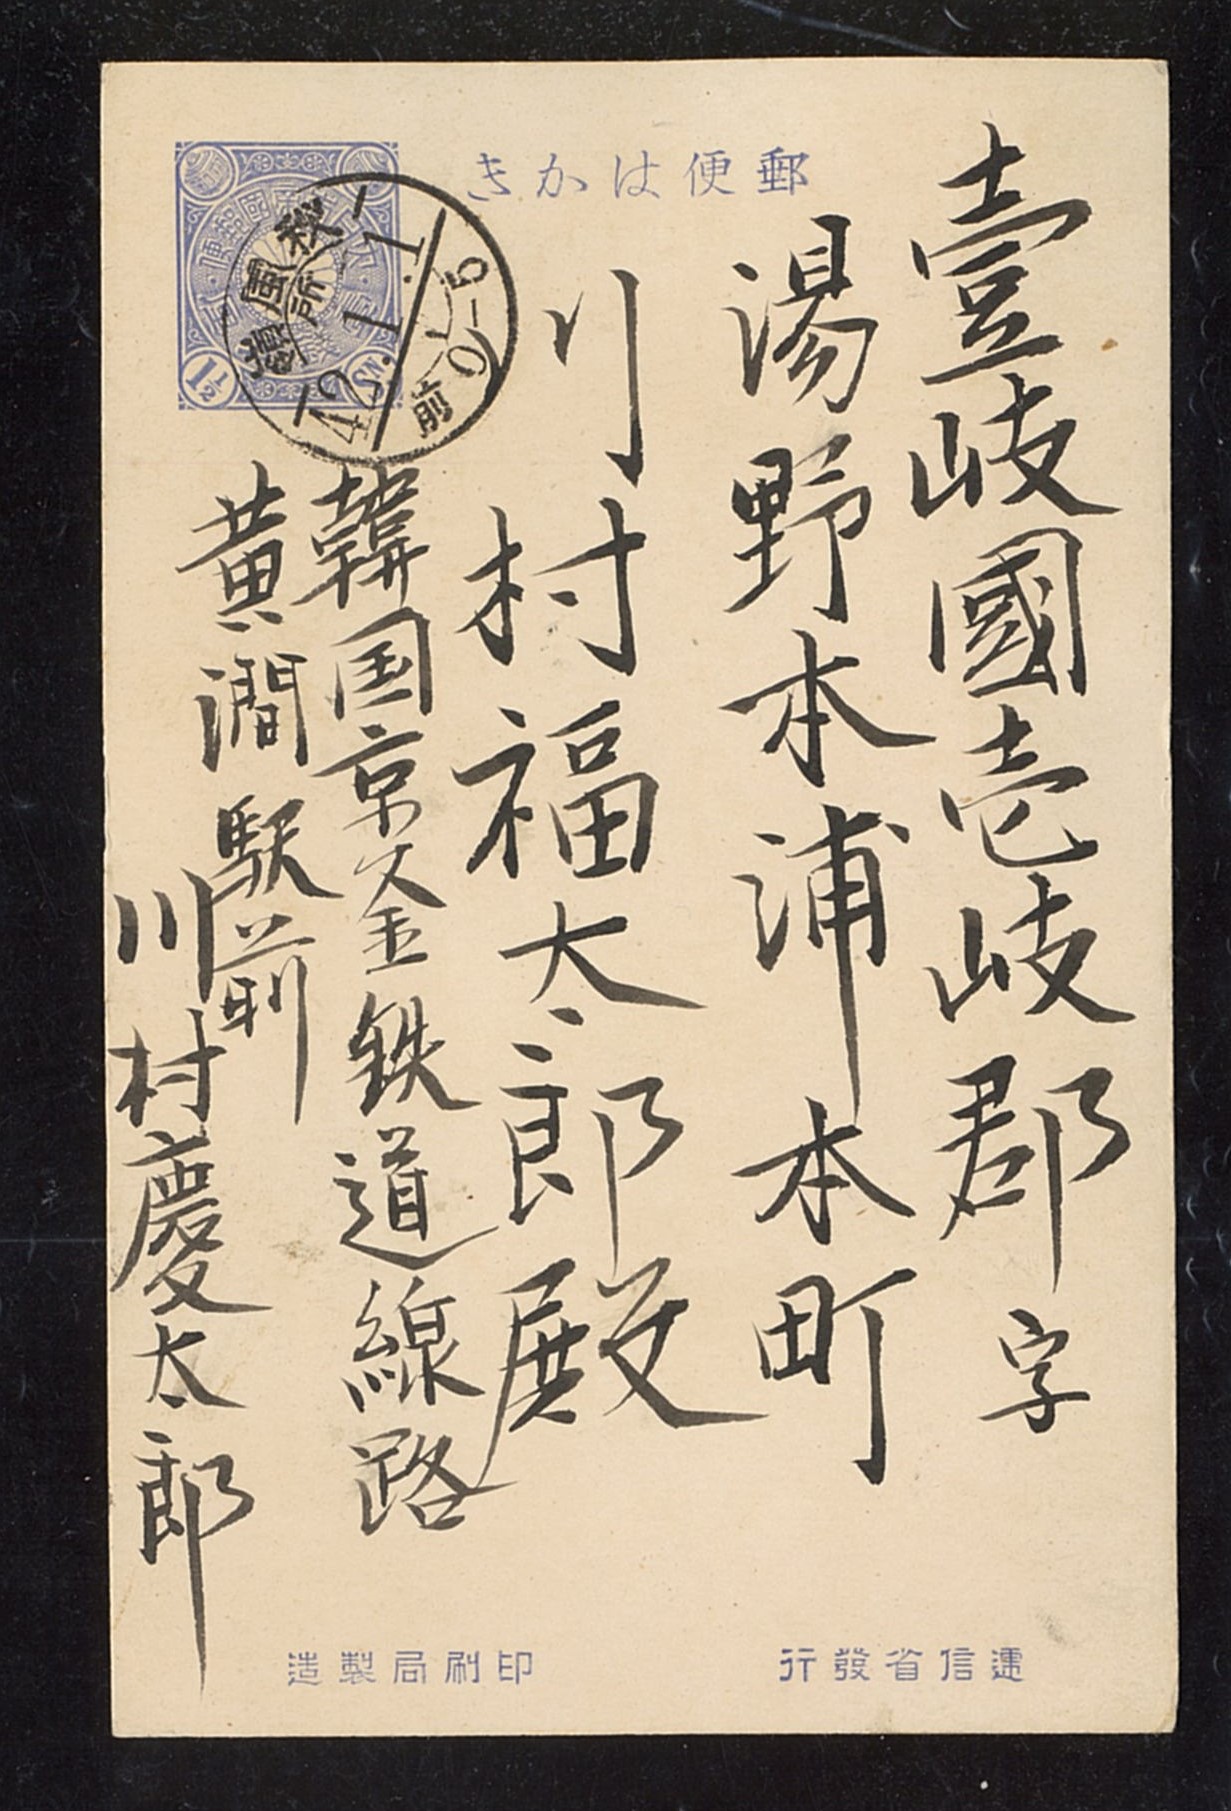 きかは便郵
壹岐國壱岐郡字
湯野本浦本町
川村福太郎殿
韓国京釜鉄道線路
黄澗駅前
川村慶太郎
1½ SN.
秋風嶺
所
42.1.1
前0-5
造製局刷印
行發省信逓